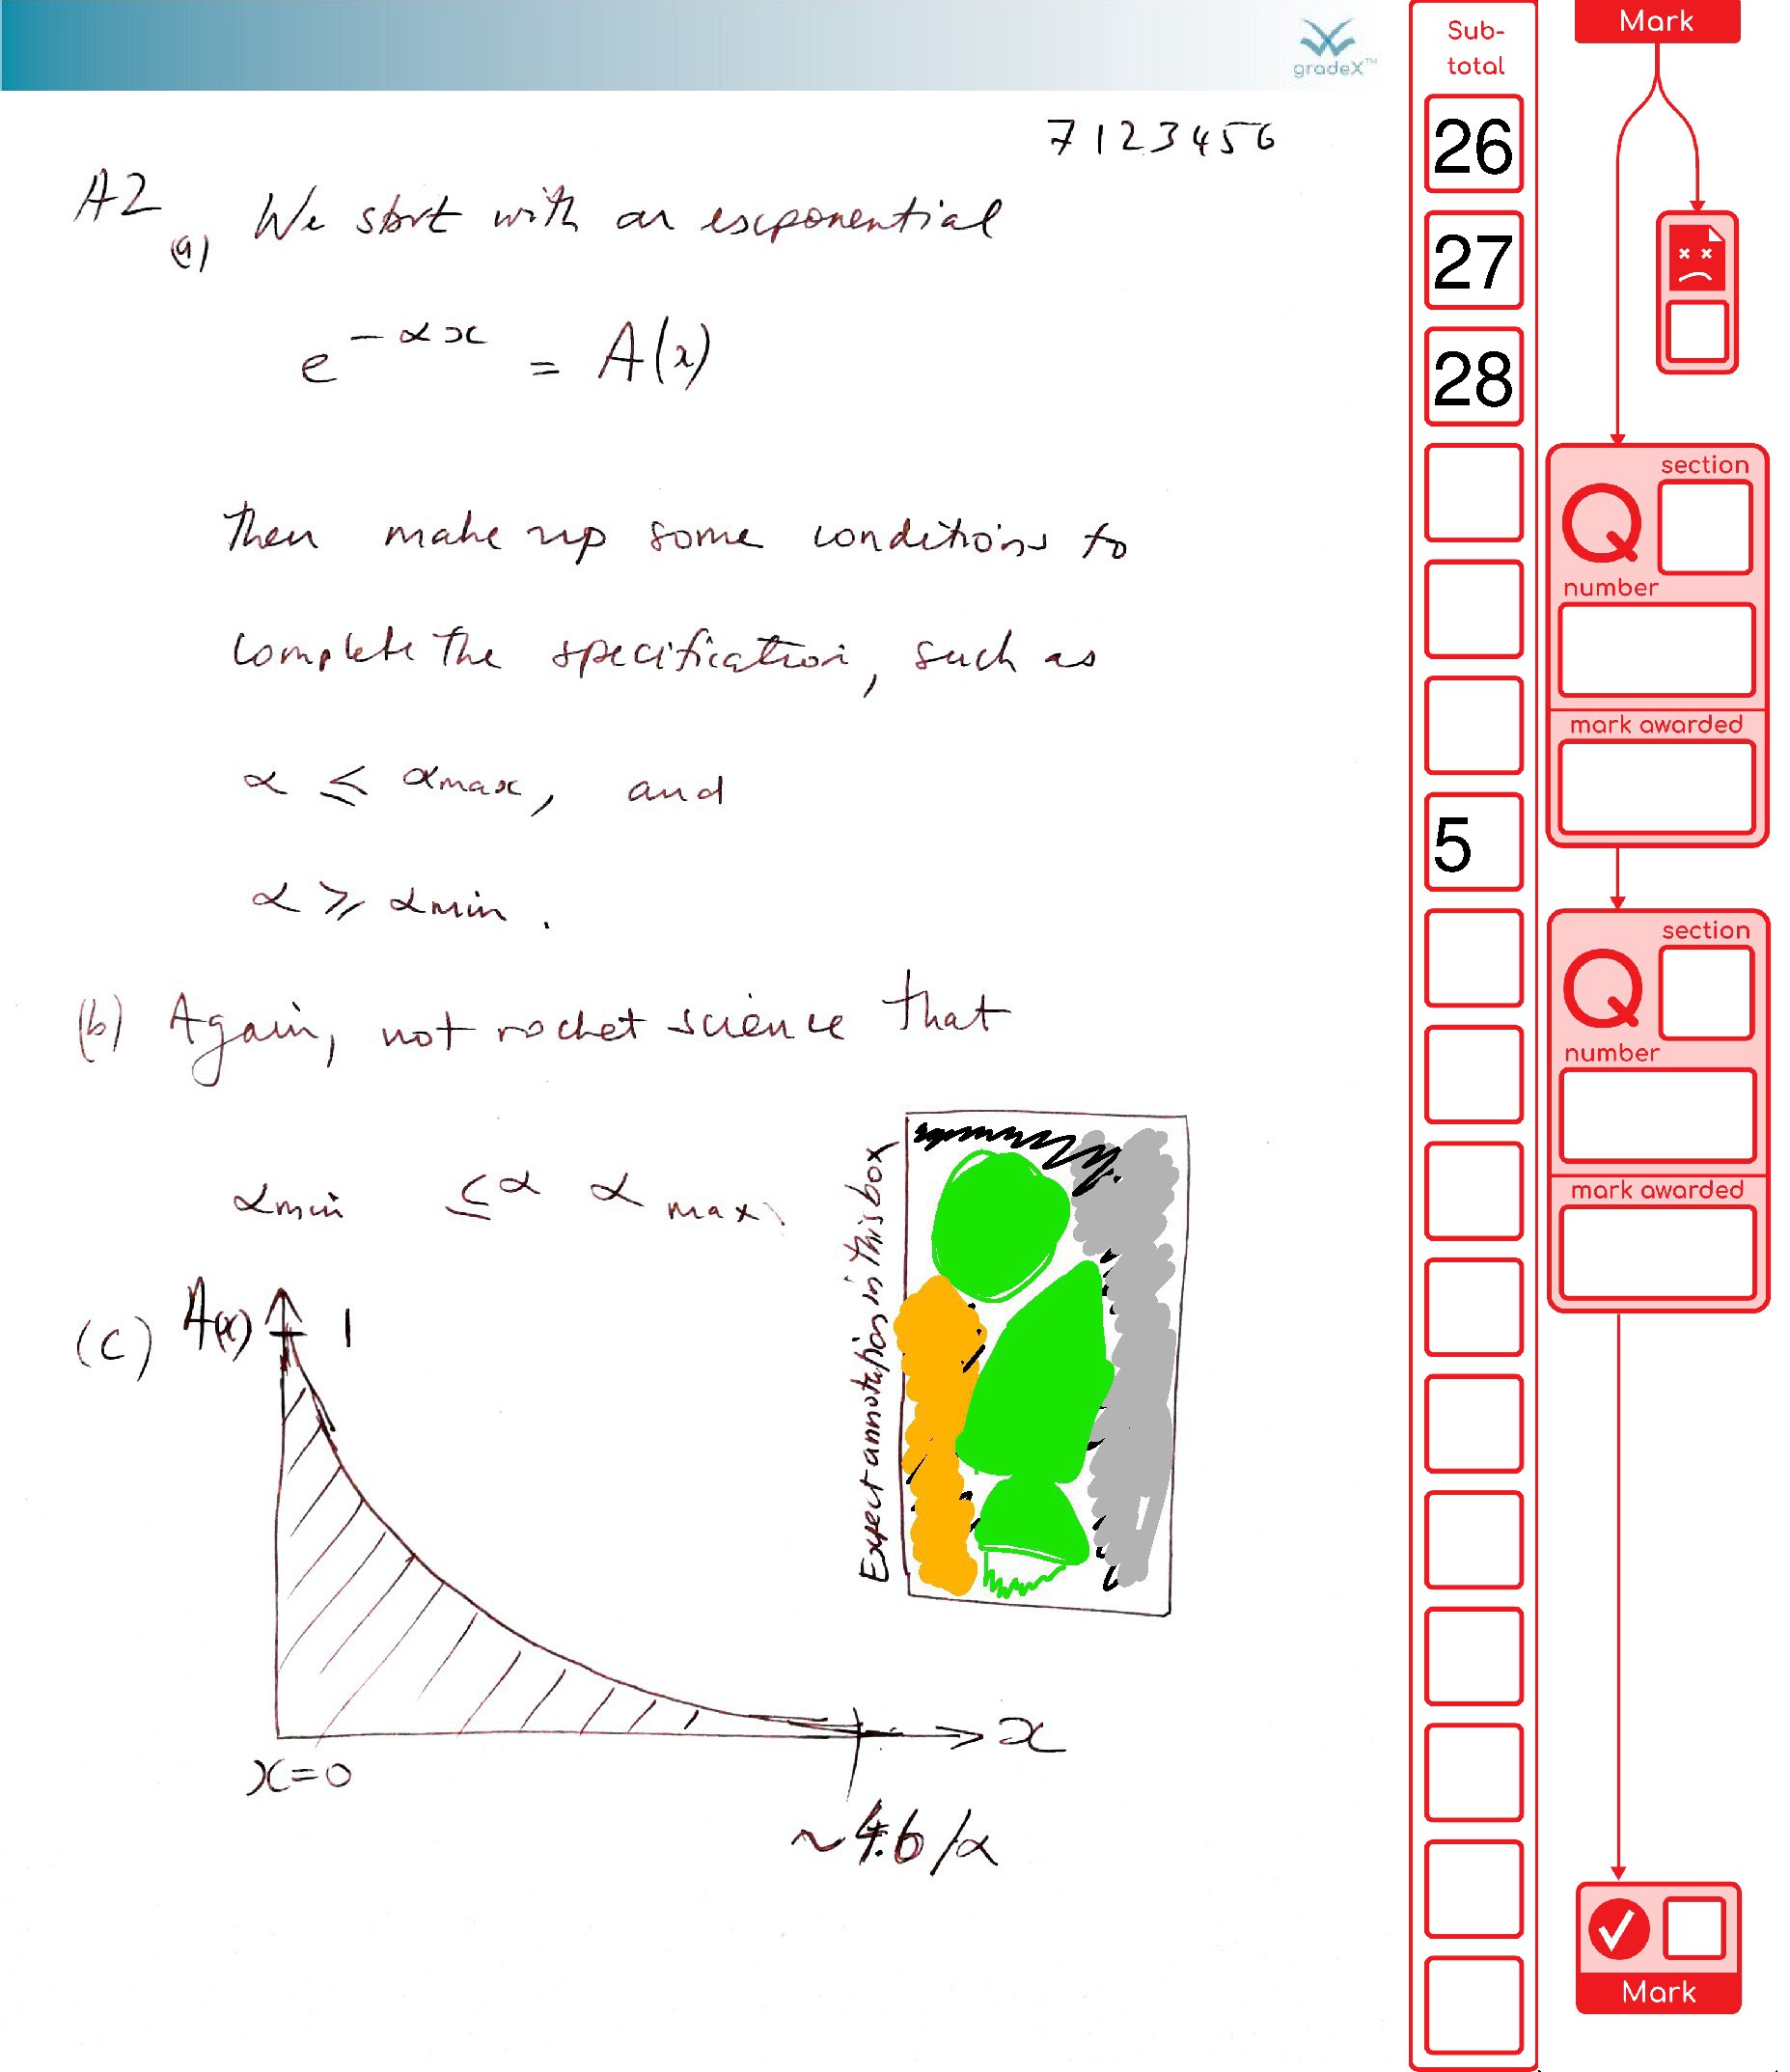 gradeX™
7123456
A2
(a) We start with an exponential
e^-αx = A(x)
then make up some conditions to
complete the specification, such as
α ≤ αmax, and
α ≥ αmin.
(b) Again, not rocket science that
αmin ≤ α αmax.
Expect annotation in this box
(c) A(x) 1
x
x=0
~4.6/α
Sub-
total
26
27
28
5
Mark
section
Q
number
mark awarded
section
Q
number
mark awarded
Mark